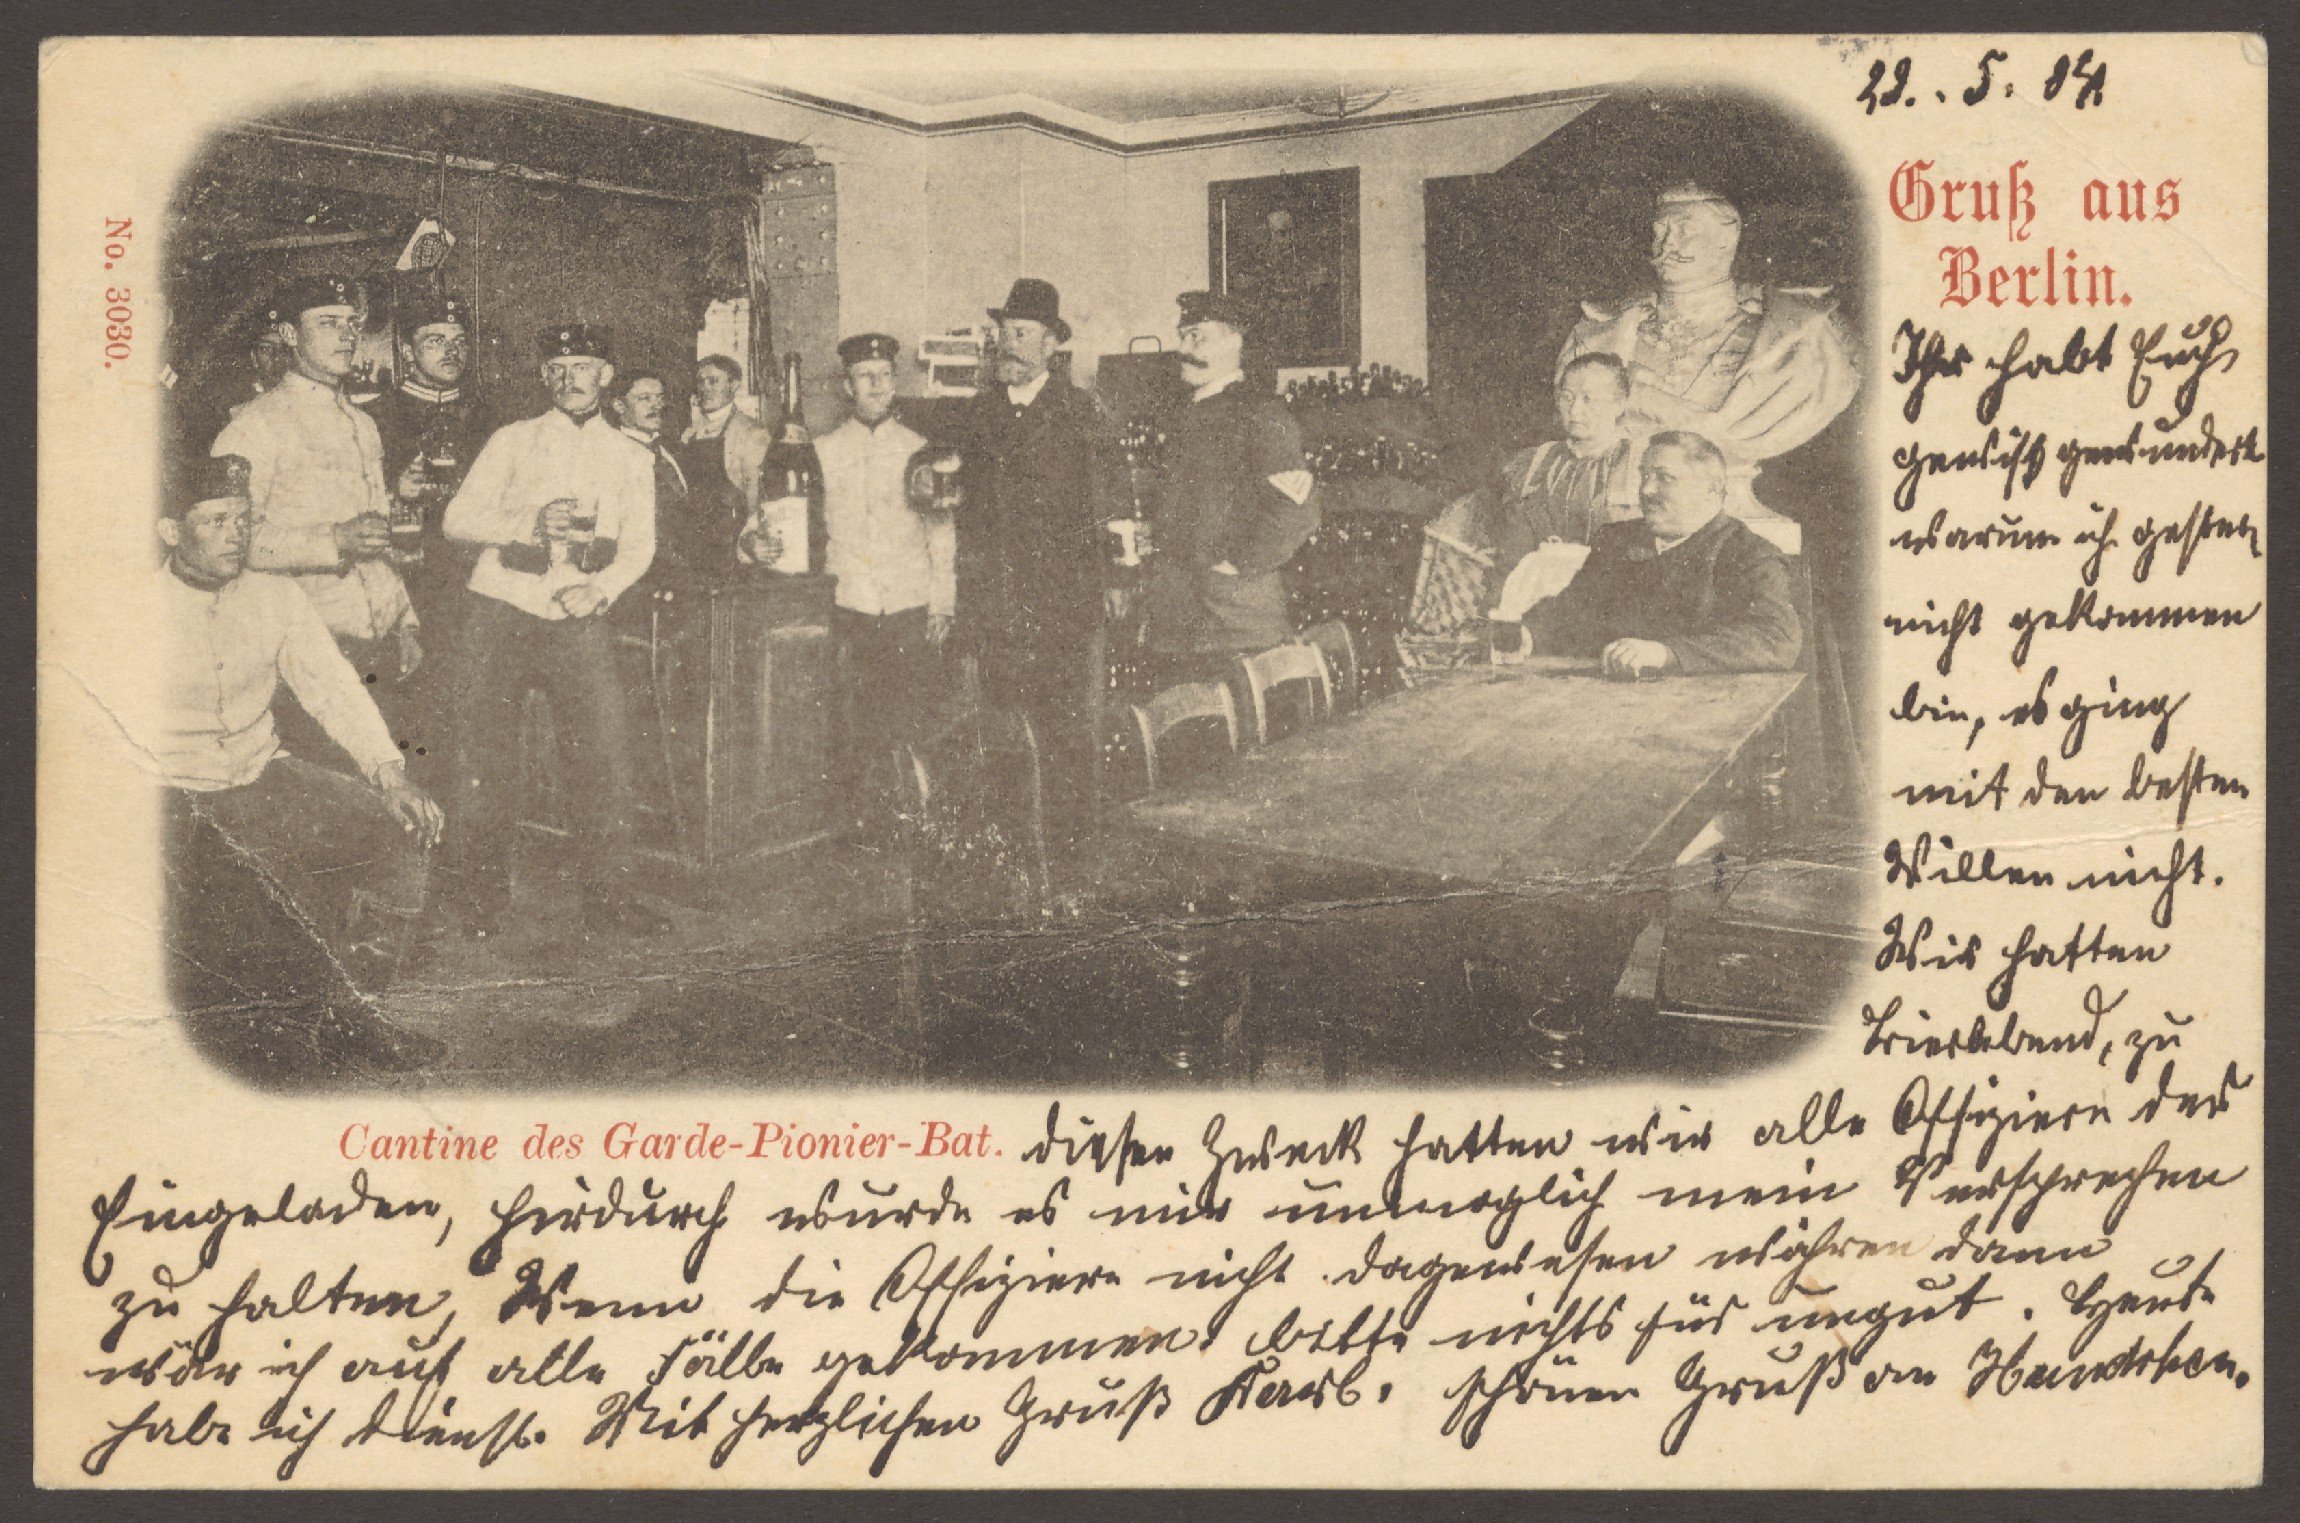 22. 5. 04.
Gruß aus
Berlin.
No. 3030.
Ihr habt Euch
gewiß gewundert
warum ich gestern
nicht gekommen
bin, es ging
mit den besten
Willen nicht.
Wir hatten
Bierabend, zu
Cantine des Garde-Pionier-Bat.
diesen Zweck hatten wir alle Offiziere der
Eingeladen, hirdurch wurde es mir unmöglich mein Versprechen
zu halten, Wenn die Offiziere nicht dagewesen währen dann
wär ich auf alle Fälle gekommen. bitte nichts für ungut. Heute
habe ich Dienst. Mit herzlichen Gruß Karl. schönen Gruß an